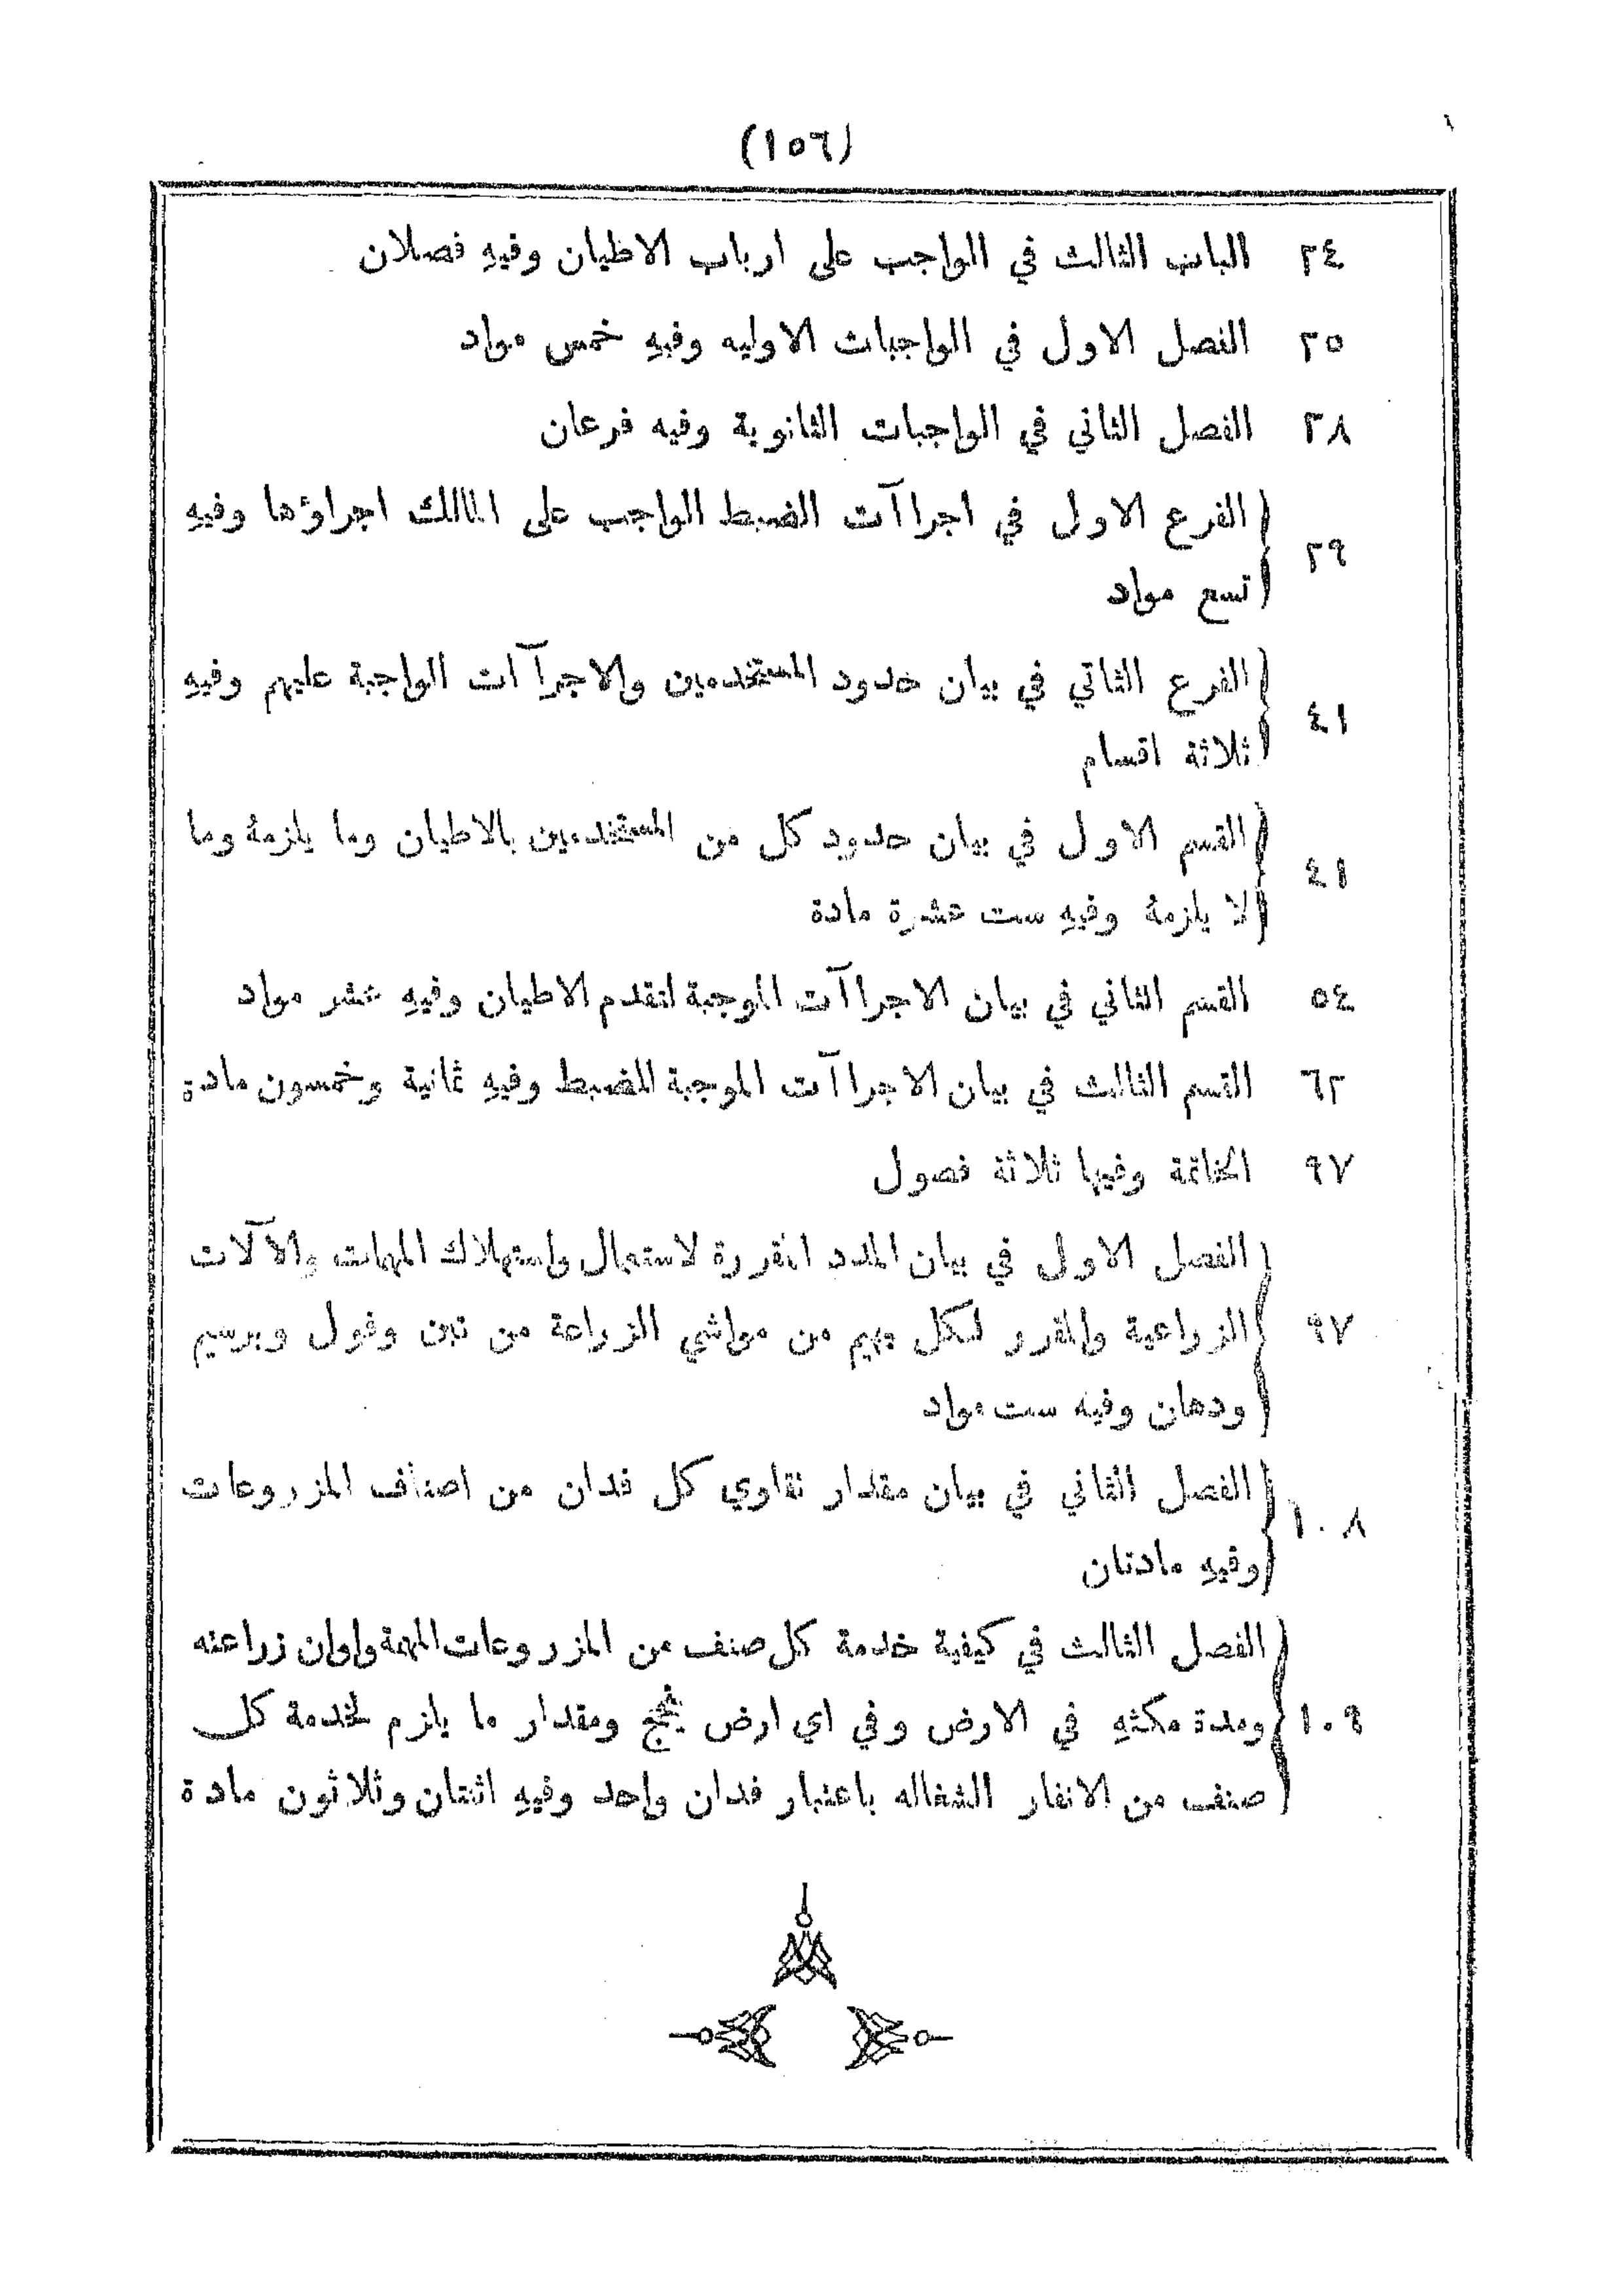 (١٥٦)
٢٤ الباب الثالث في الواجب على ارباب الاطيان وفيهِ فصلان
٢٥ الفصل الاول في الواجبات الاوليه وفيهِ خمس مواد
٢٨ الفصل الثاني في الواجبات الثانوية وفيه فرعان
الفرع الاول في اجراآت الضبط الواجب على المالك اجراؤها وفيهِ
٢٩
تسع مواد
الفرع الثاني في بيان حدود المستخدمين والاجراآت الواجبة عليهم وفيهِ
٤١
ثلاثة اقسام
القسم الاول في بيان حدود كل من المستخدمين بالاطيان وما يلزمهُ وما
٤١
لا يلزمهُ وفيهِ ست عشرة مادة
٥٤ القسم الثاني في بيان الاجراآت الموجبة لتقدم الاطيان وفيهِ عشر مواد
٦٢ القسم الثالث في بيان الاجراآت الموجبة للضبط وفيهِ ثمانية وخمسون مادة
٩٧ الخاتمة وفيها ثلاثة فصول
الفصل الاول في بيان المدد المقررة لاستعمال واستهلاك المهمات والآلات
٩٧ الزراعية والمقرر لكل بهيم من مواشي الزراعة من تبن وفول وبرسيم
ودهان وفيه ست مواد
الفصل الثاني في بيان مقدار تقاوي كل فدان من اصناف المزروعات
١٠٨
وفيهِ مادتان
الفصل الثالث في كيفية خدمة كل صنف من المزروعات المهمة واوان زراعته
١٠٩ ومدة مكثهِ في الارض وفي اي ارض ينجح ومقدار ما يلزم لخدمة كل
صنف من الانفار الشغاله باعتبار فدان واحد وفيهِ اثنتان وثلاثون مادة